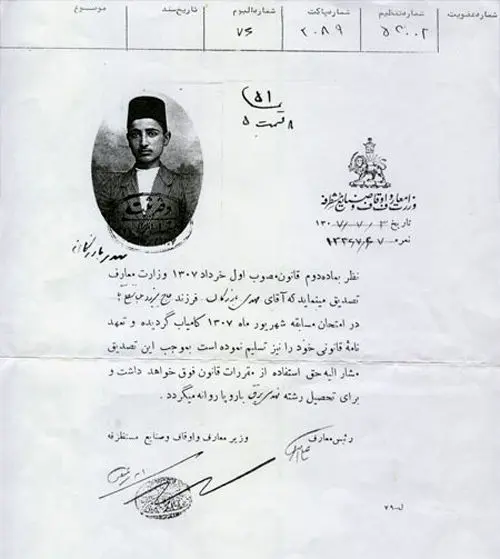 شماره عضویت شماره تنظیم شماره پاکت شماره آلبوم تاریخ سند موضوع
۵۲۰۰۲ ۲۰۸۹ ۷۶
قسمت ۵
وزارت معارف و اوقاف و صنایع مستظرفه
تاریخ
نمره
مهدی بازرگان
نظر بماده دوم قانون مصوب اول خرداد ۱۳۰۷ وزارت معارف
تصدیق مینماید که آقای مهدی بازرگان فرزند حاج
در امتحان مسابقه شهریور ماه ۱۳۰۷ کامیاب گردیده و تعهد
نامهٔ قانونی خود را نیز تسلیم نموده است بموجب این تصدیق
مشار الیه حق استفاده از مقررات قانون فوق خواهد داشت و
برای تحصیل رشته مهندسی برق باروپا روانه میگردد .
رئیس معارف وزیر معارف و اوقاف و صنایع مستظرفه